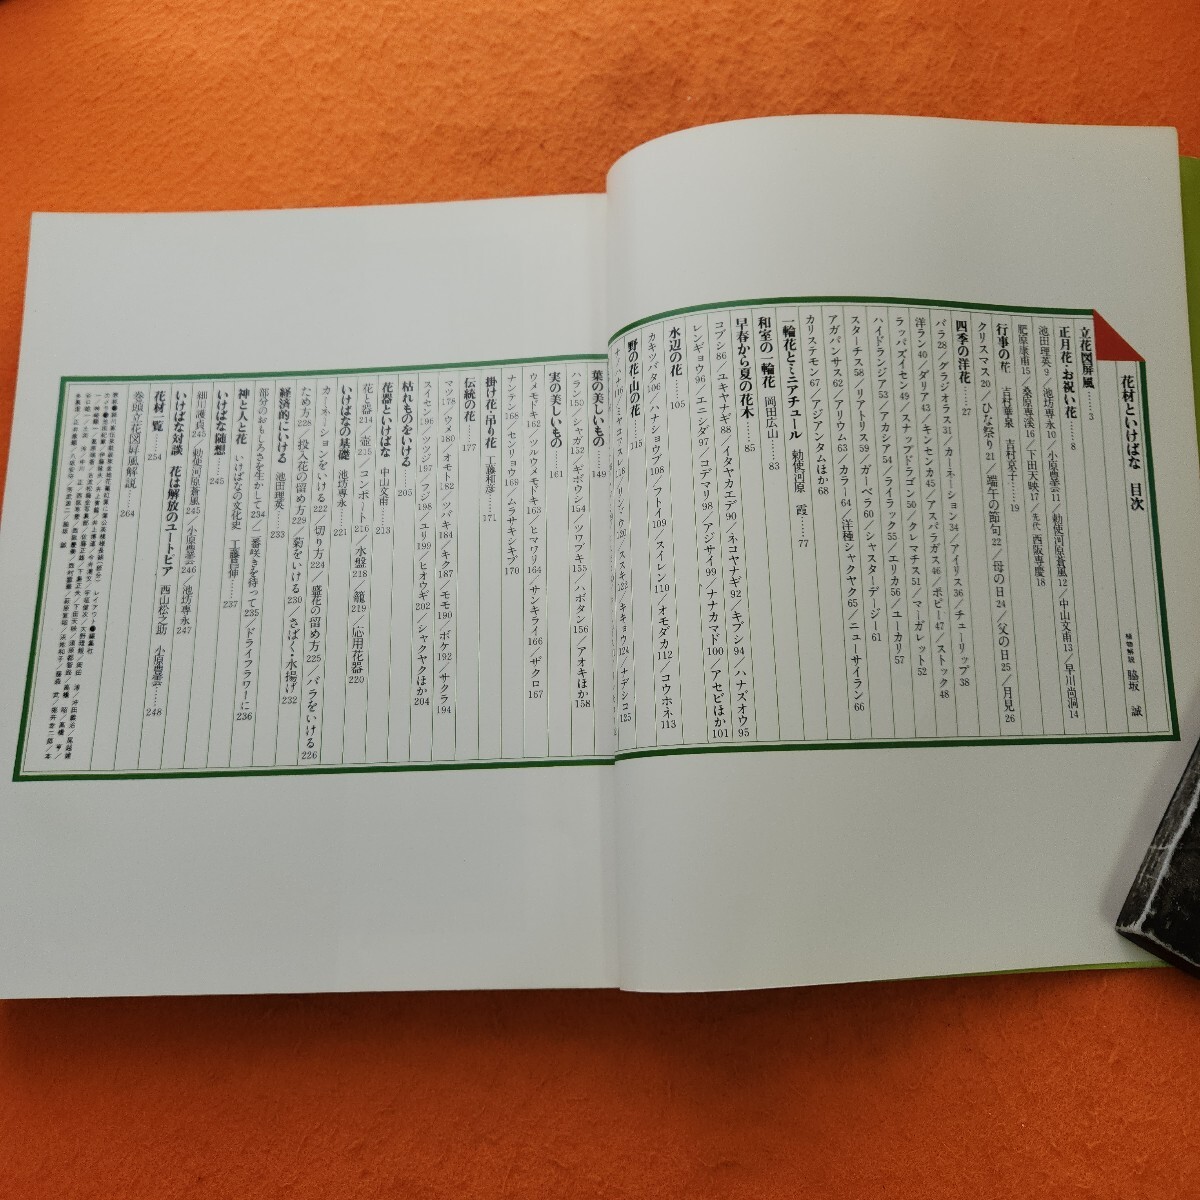 花材といけばな 目次
植物解説 脇坂 誠
立花図屏風……3
正月花・お祝い花……8
池田理英9／池坊専永10／小原豊雲11／勅使河原蒼風12／中山文甫13／早川尚洞14
肥原康甫15／桑原専渓16／下田天映17／先代・西阪専慶18
行事の花 吉村華泉 吉村京子……19
クリスマス20／ひな祭り21／端午の節句22／母の日24／父の日25／月見26
四季の洋花……27
バラ28／グラジオラス31／カーネーション34／アイリス36／チューリップ38
洋ラン40／ダリア43／キンセンカ45／アスパラガス46／ポピー47／ストック48
ラッパズイセン49／スナップドラゴン50／クレマチス51／マーガレット52
ハイドランジア53／アカシア54／ライラック55／エリカ56／ユーカリ57
スターチス58／リアトリス59／ガーベラ60／シャスターデージー61
アガパンサス62／アリウム63／カラー64／洋種シャクヤク65／ニューサイラン66
カリステモン67／アジアンタムほか68
一輪花とミニアチュール 勅使河原 霞……77
和室の一輪花 岡田広山……83
早春から夏の花木……85
コブシ86／ユキヤナギ88／イタヤカエデ90／ネコヤナギ92／キブシ94／ハナズオウ95
レンギョウ96／エニシダ97／コデマリ98／アジサイ99／ナナカマド100／アセビほか101
水辺の花……105
カキツバタ106／ハナショウブ108／フトイ109／スイレン110／オモダカ112／コウホネ113
野の花・山の花……115
キキョウ124／ナデシコ125
葉の美しいもの……149
ハラン150／シャガ152／ギボウシ154／ツワブキ155／ハボタン156／アオキほか158
実の美しいもの……161
ウメモドキ162／ツルウメモドキ163／ヒマワリ164／サンキライ166／ザクロ167
ナンテン168／センリョウ169／ムラサキシキブ170
掛け花・吊り花 工藤和彦……171
伝統の花……177
マツ178／ウメ180／オモト182／ツバキ184／キク187／モモ190／ボケ192／サクラ194
スイセン196／ツツジ197／フジ198／ユリ199／ヒオウギ202／シャクヤクほか204
枯れものをいける……205
花器といけばな 中山文甫……213
花と器214／壺215／コンポート216／水盤218／籠219／応用花器220
いけばなの基礎 池坊専永……221
カーネーションをいける222／切り方224／盛花の留め方225／バラをいける226
ため方228／投入花の留め方229／菊をいける230／さばく・水揚げ232
経済的にいける 池田理英……233
部分のおもしろさを生かして234／二番咲きを待って235／ドライフラワーに236
神と人と花 いけばなの文化史 工藤昌伸……237
いけばな随想……245
細川護貞245／勅使河原蒼風245／小原豊雲246／池坊専永247
いけばな対談 花は解放のユートピア 西山松之助 小原豊雲……248
花材一覧……254
巻頭立花図屏風解説……264